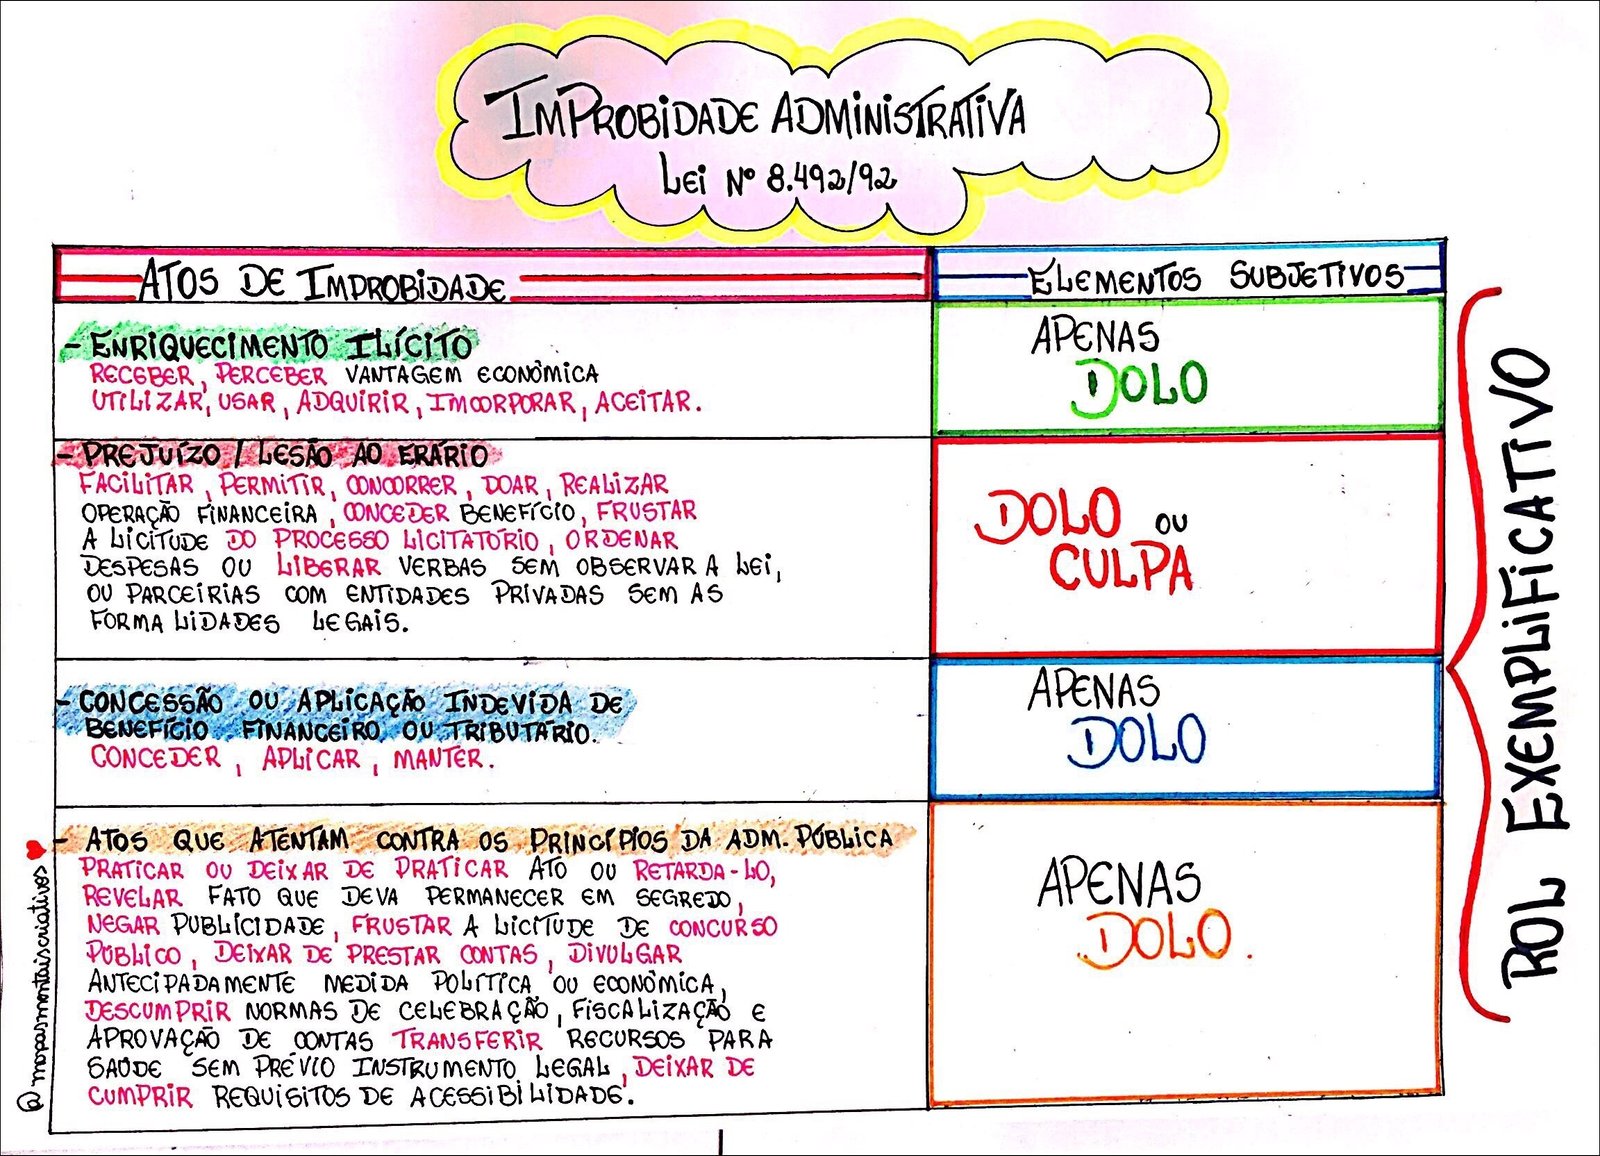 IMPROBIDADE ADMINISTRATIVA
LEI Nº 8.492/92
ATOS DE IMPROBIDADE
ELEMENTOS SUBJETIVOS
- ENRIQUECIMENTO ILÍCITO
RECEBER, PERCEBER VANTAGEM ECONÔMICA
UTILIZAR, USAR, ADQUIRIR, IMCORPORAR, ACEITAR.
APENAS
DOLO
- PREJUÍZO / LESÃO AO ERÁRIO
FACILITAR, PERMITIR, CONCORRER, DOAR, REALIZAR
OPERAÇÃO FINANCEIRA, CONCEDER BENEFÍCIO, FRUSTAR
A LICITUDE DO PROCESSO LICITATÓRIO, ORDENAR
DESPESAS OU LIBERAR VERBAS SEM OBSERVAR A LEI,
OU PARCEIRIAS COM ENTIDADES PRIVADAS SEM AS
FORMALIDADES LEGAIS.
DOLO OU
CULPA
- CONCESSÃO OU APLICAÇÃO INDEVIDA DE
BENEFÍCIO FINANCEIRO OU TRIBUTÁRIO.
CONCEDER, APLICAR, MANTER.
APENAS
DOLO
- ATOS QUE ATENTAM CONTRA OS PRINCÍPIOS DA ADM. PÚBLICA
PRATICAR OU DEIXAR DE PRATICAR ATO OU RETARDA-LO,
REVELAR FATO QUE DEVA PERMANECER EM SEGREDO,
NEGAR PUBLICIDADE, FRUSTAR A LICITUDE DE CONCURSO
PÚBLICO, DEIXAR DE PRESTAR CONTAS, DIVULGAR
ANTECIPADAMENTE MEDIDA POLÍTICA OU ECONÔMICA,
DESCUMPRIR NORMAS DE CELEBRAÇÃO, FISCALIZAÇÃO E
APROVAÇÃO DE CONTAS TRANSFERIR RECURSOS PARA
SAÚDE SEM PRÉVIO INSTRUMENTO LEGAL, DEIXAR DE
CUMPRIR REQUISITOS DE ACESSIBILIDADE.
APENAS
DOLO.
ROL EXEMPLIFICATIVO
@mapasmentaiscriativos